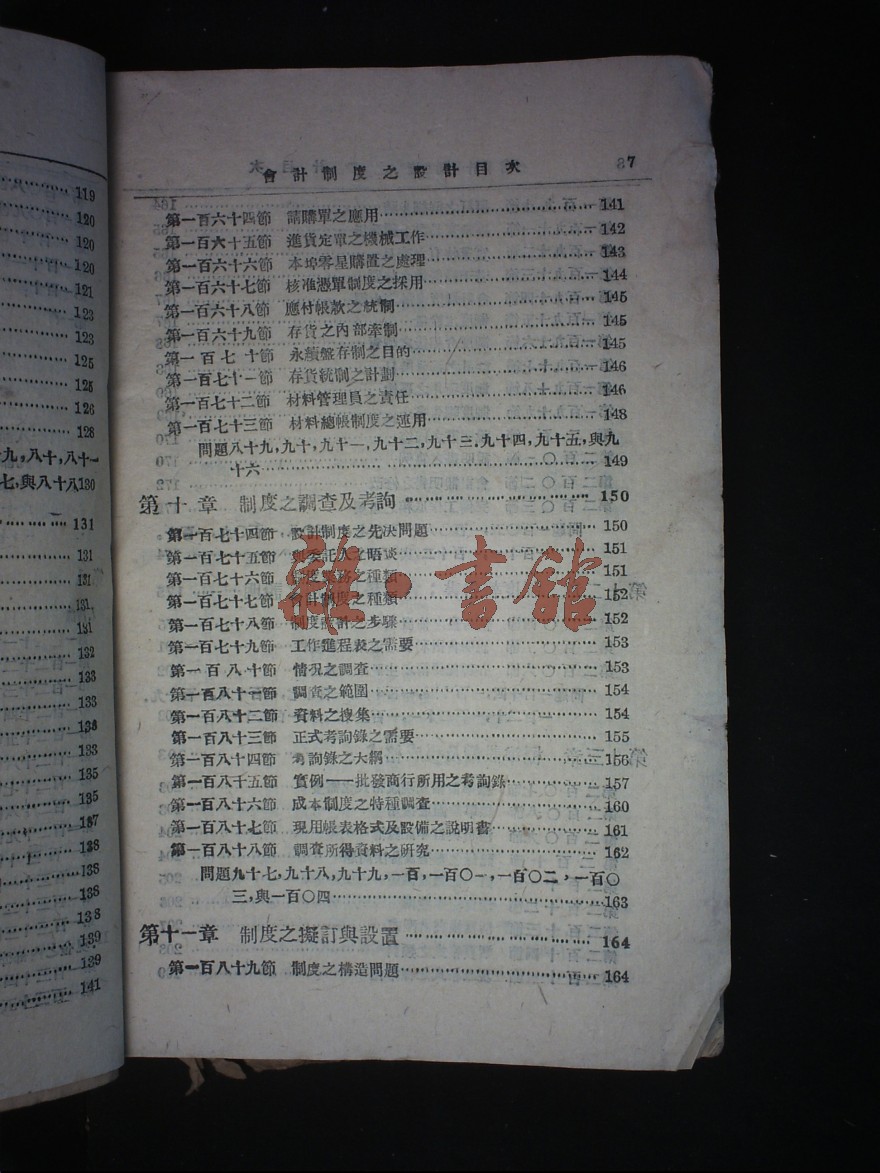 119
120
120
120
121
123
123
125
125
126
128
九,八十,八十一
七,與八十八130
131
131
131
131
131
132
133
133
133
133
135
135
137
138
138
138
138
139
139
141
會計制度之設計目次 7
第一百六十四節 請購單之應用 141
第一百六十五節 進貨定單之機械工作 142
第一百六十六節 本埠零星購置之處理 143
第一百六十七節 核准憑單制度之採用 144
第一百六十八節 應付帳款之統制 145
第一百六十九節 存貨之內部牽制 145
第一百七十節 永續盤存制之目的 145
第一百七十一節 存貨統制之計劃 146
第一百七十二節 材料管理員之責任 146
第一百七十三節 材料總帳制度之運用 148
問題八十九,九十,九十一,九十二,九十三,九十四,九十五,與九
十六 149
第十章 制度之調查及考詢 150
第一百七十四節 設計制度之先決問題 150
第一百七十五節 與委託人之晤談 151
第一百七十六節 制度業務之種類 151
第一百七十七節 會計制度之種類 152
第一百七十八節 制度設計之步驟 152
第一百七十九節 工作進程表之需要 153
第一百八十節 情況之調查 153
第一百八十一節 調查之範圍 154
第一百八十二節 資料之搜集 154
第一百八十三節 正式考詢錄之需要 155
第一百八十四節 考詢錄之大綱 156
第一百八十五節 實例——批發商行所用之考詢錄 157
第一百八十六節 成本制度之特種調查 160
第一百八十七節 現用帳表格式及設備之說明書 161
第一百八十八節 調查所得資料之研究 162
問題九十七,九十八,九十九,一百,一百〇一,一百〇二,一百〇
三,與一百〇四 163
第十一章 制度之擬訂與設置 164
第一百八十九節 制度之構造問題 164
雜·書館